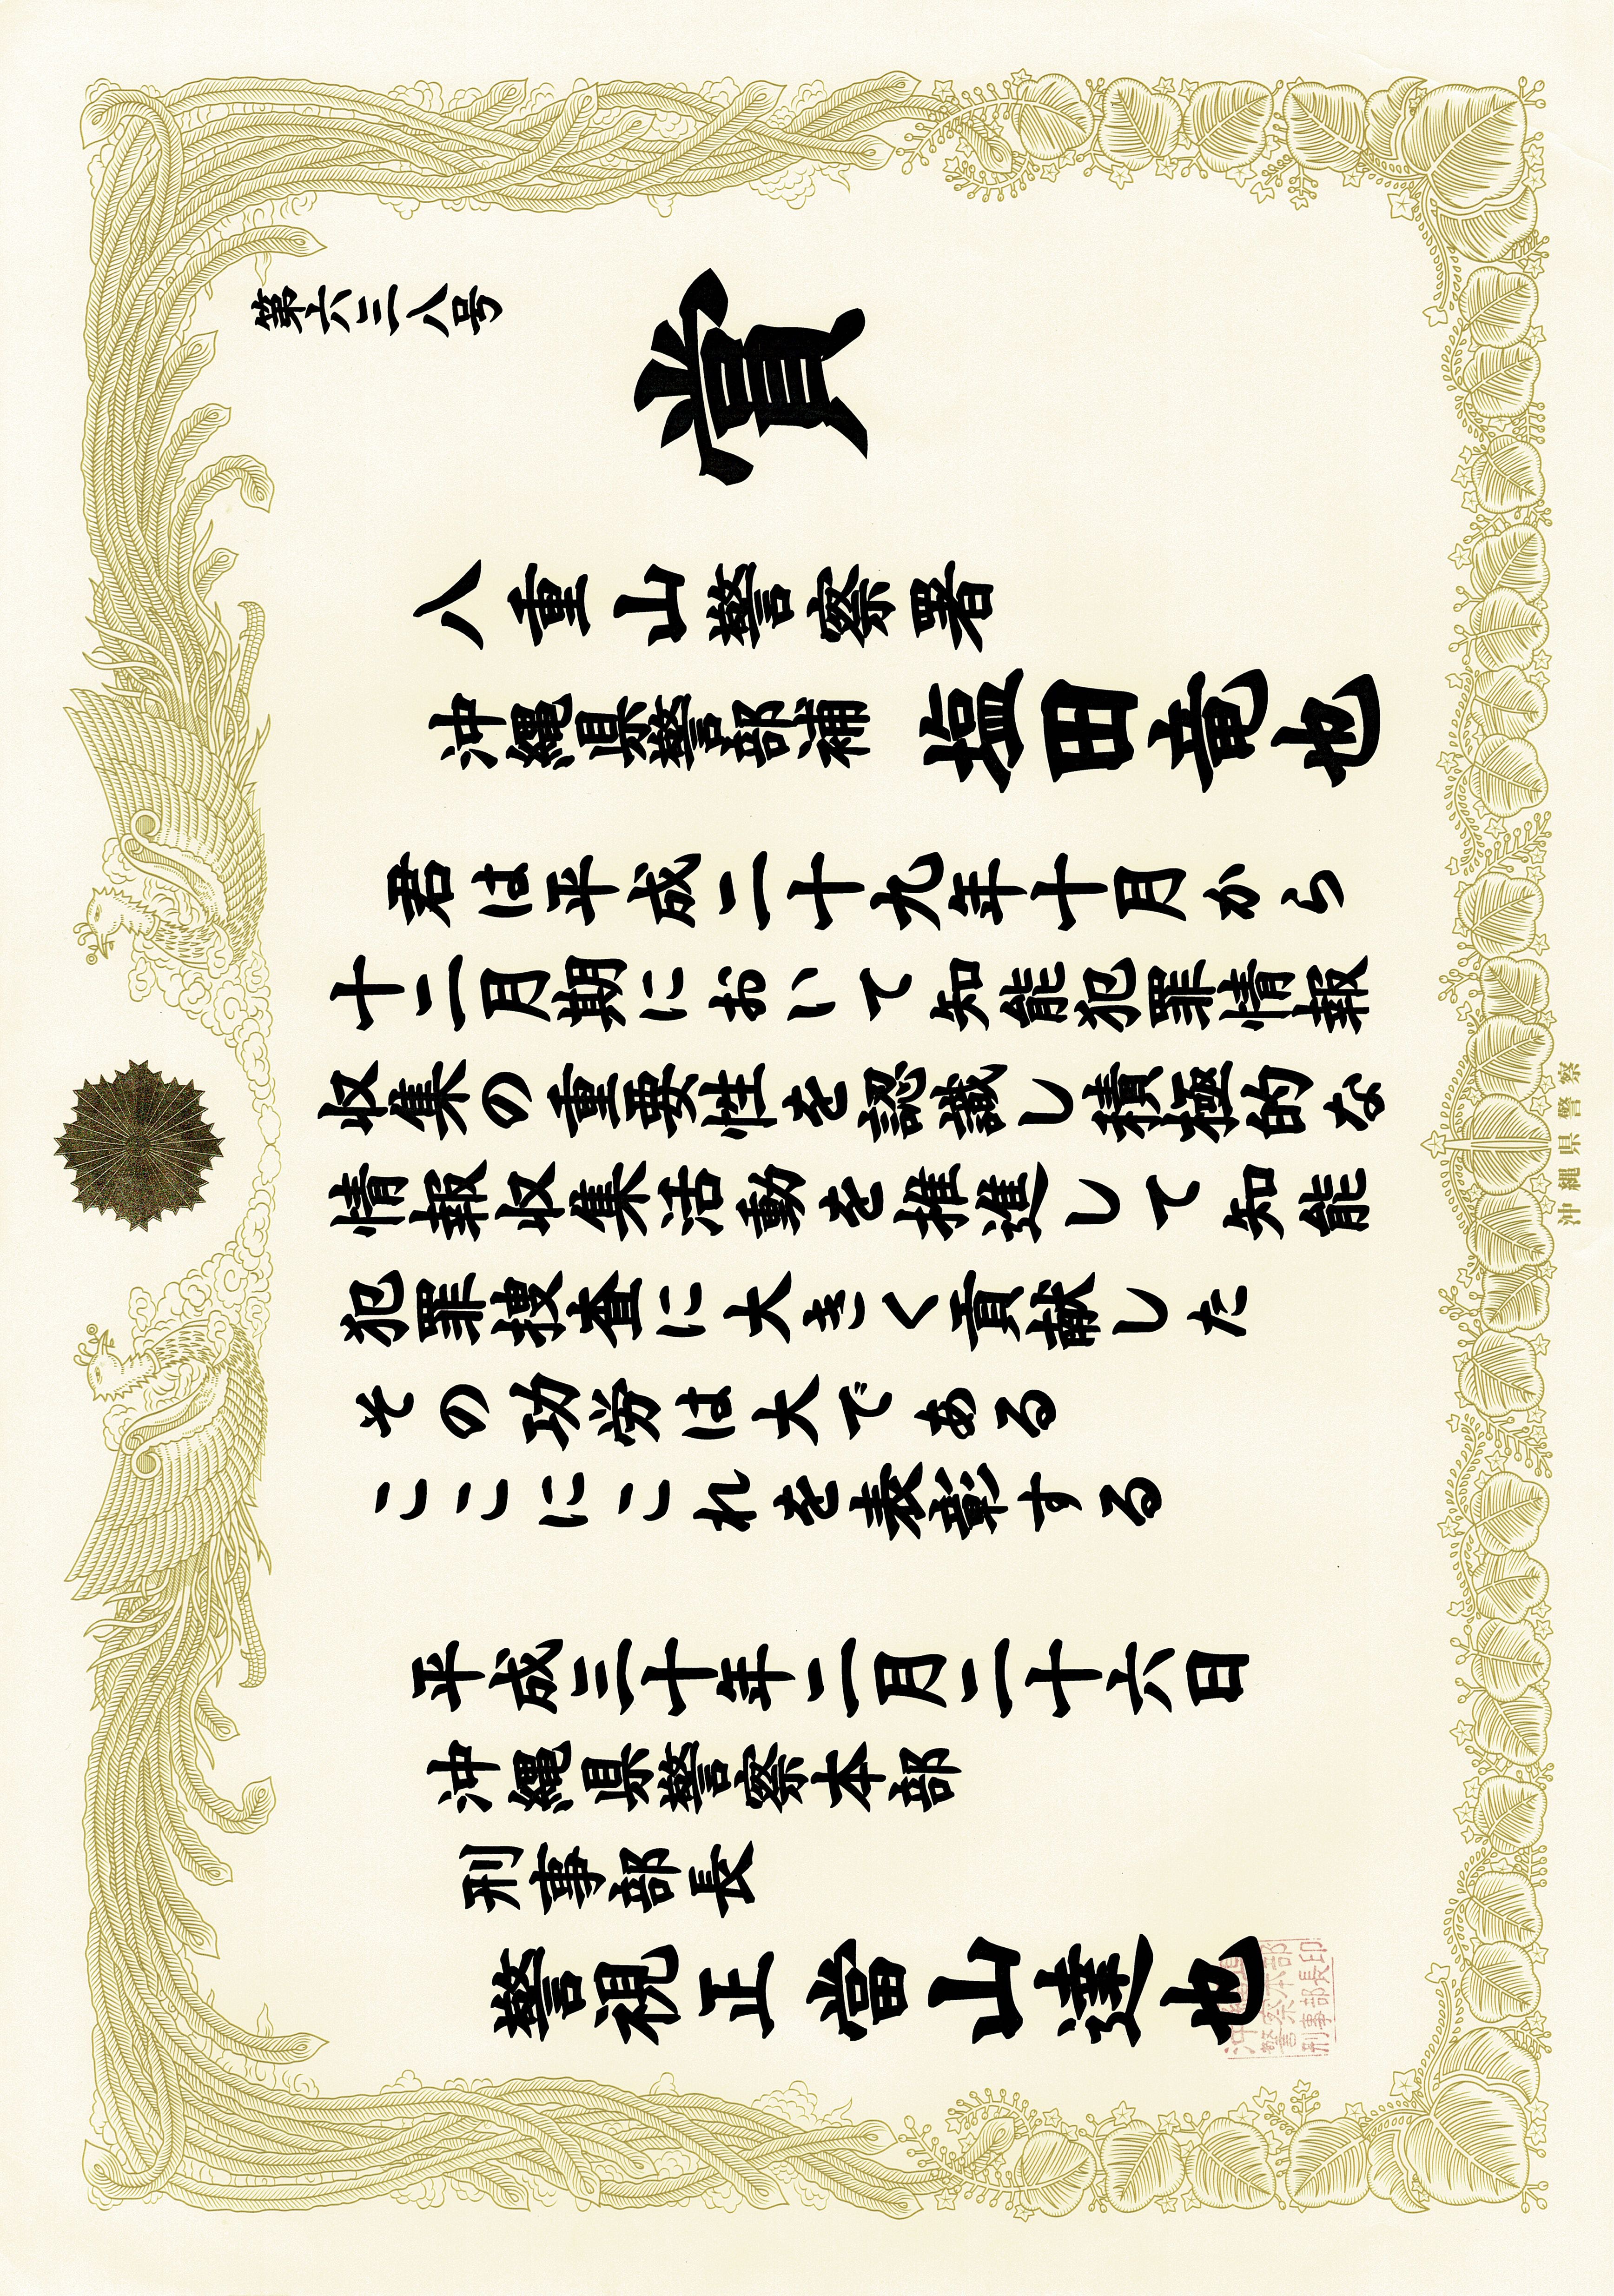 第六三八号
賞
八重山警察署
沖縄県警部補 塩田竜也
君は平成二十九年十月から
十二月期において知能犯罪情報
収集の重要性を認識し積極的な
情報収集活動を推進して知能
犯罪捜査に大きく貢献した
その功労は大である
ここにこれを表彰する
平成三十年二月二十六日
沖縄県警察本部
刑事部長
警視正 當山達也
沖縄県
警察本部
刑事部長印
沖縄県警察